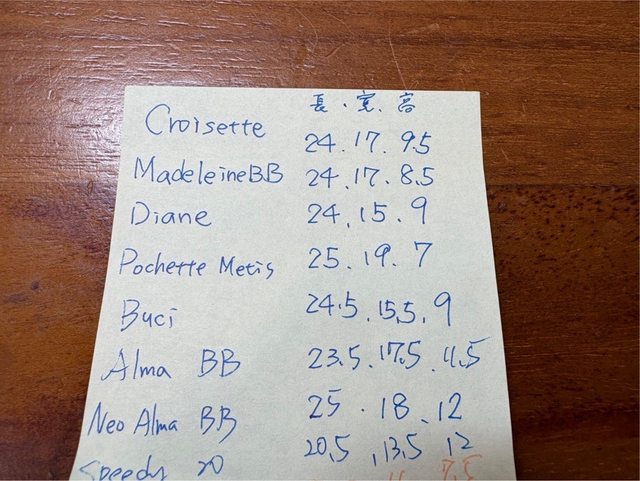 長 . 寬 . 高
Croisette 24 . 17 . 9.5
MadeleineBB 24 . 17 . 8.5
Diane 24 . 15 . 9
Pochette Metis 25 . 19 . 7
Buci 24.5 . 15.5 . 9
Alma BB 23.5 . 17.5 . 11.5
Neo Alma BB 25 . 18 . 12
Speedy 20 20.5 . 13.5 12
7.5